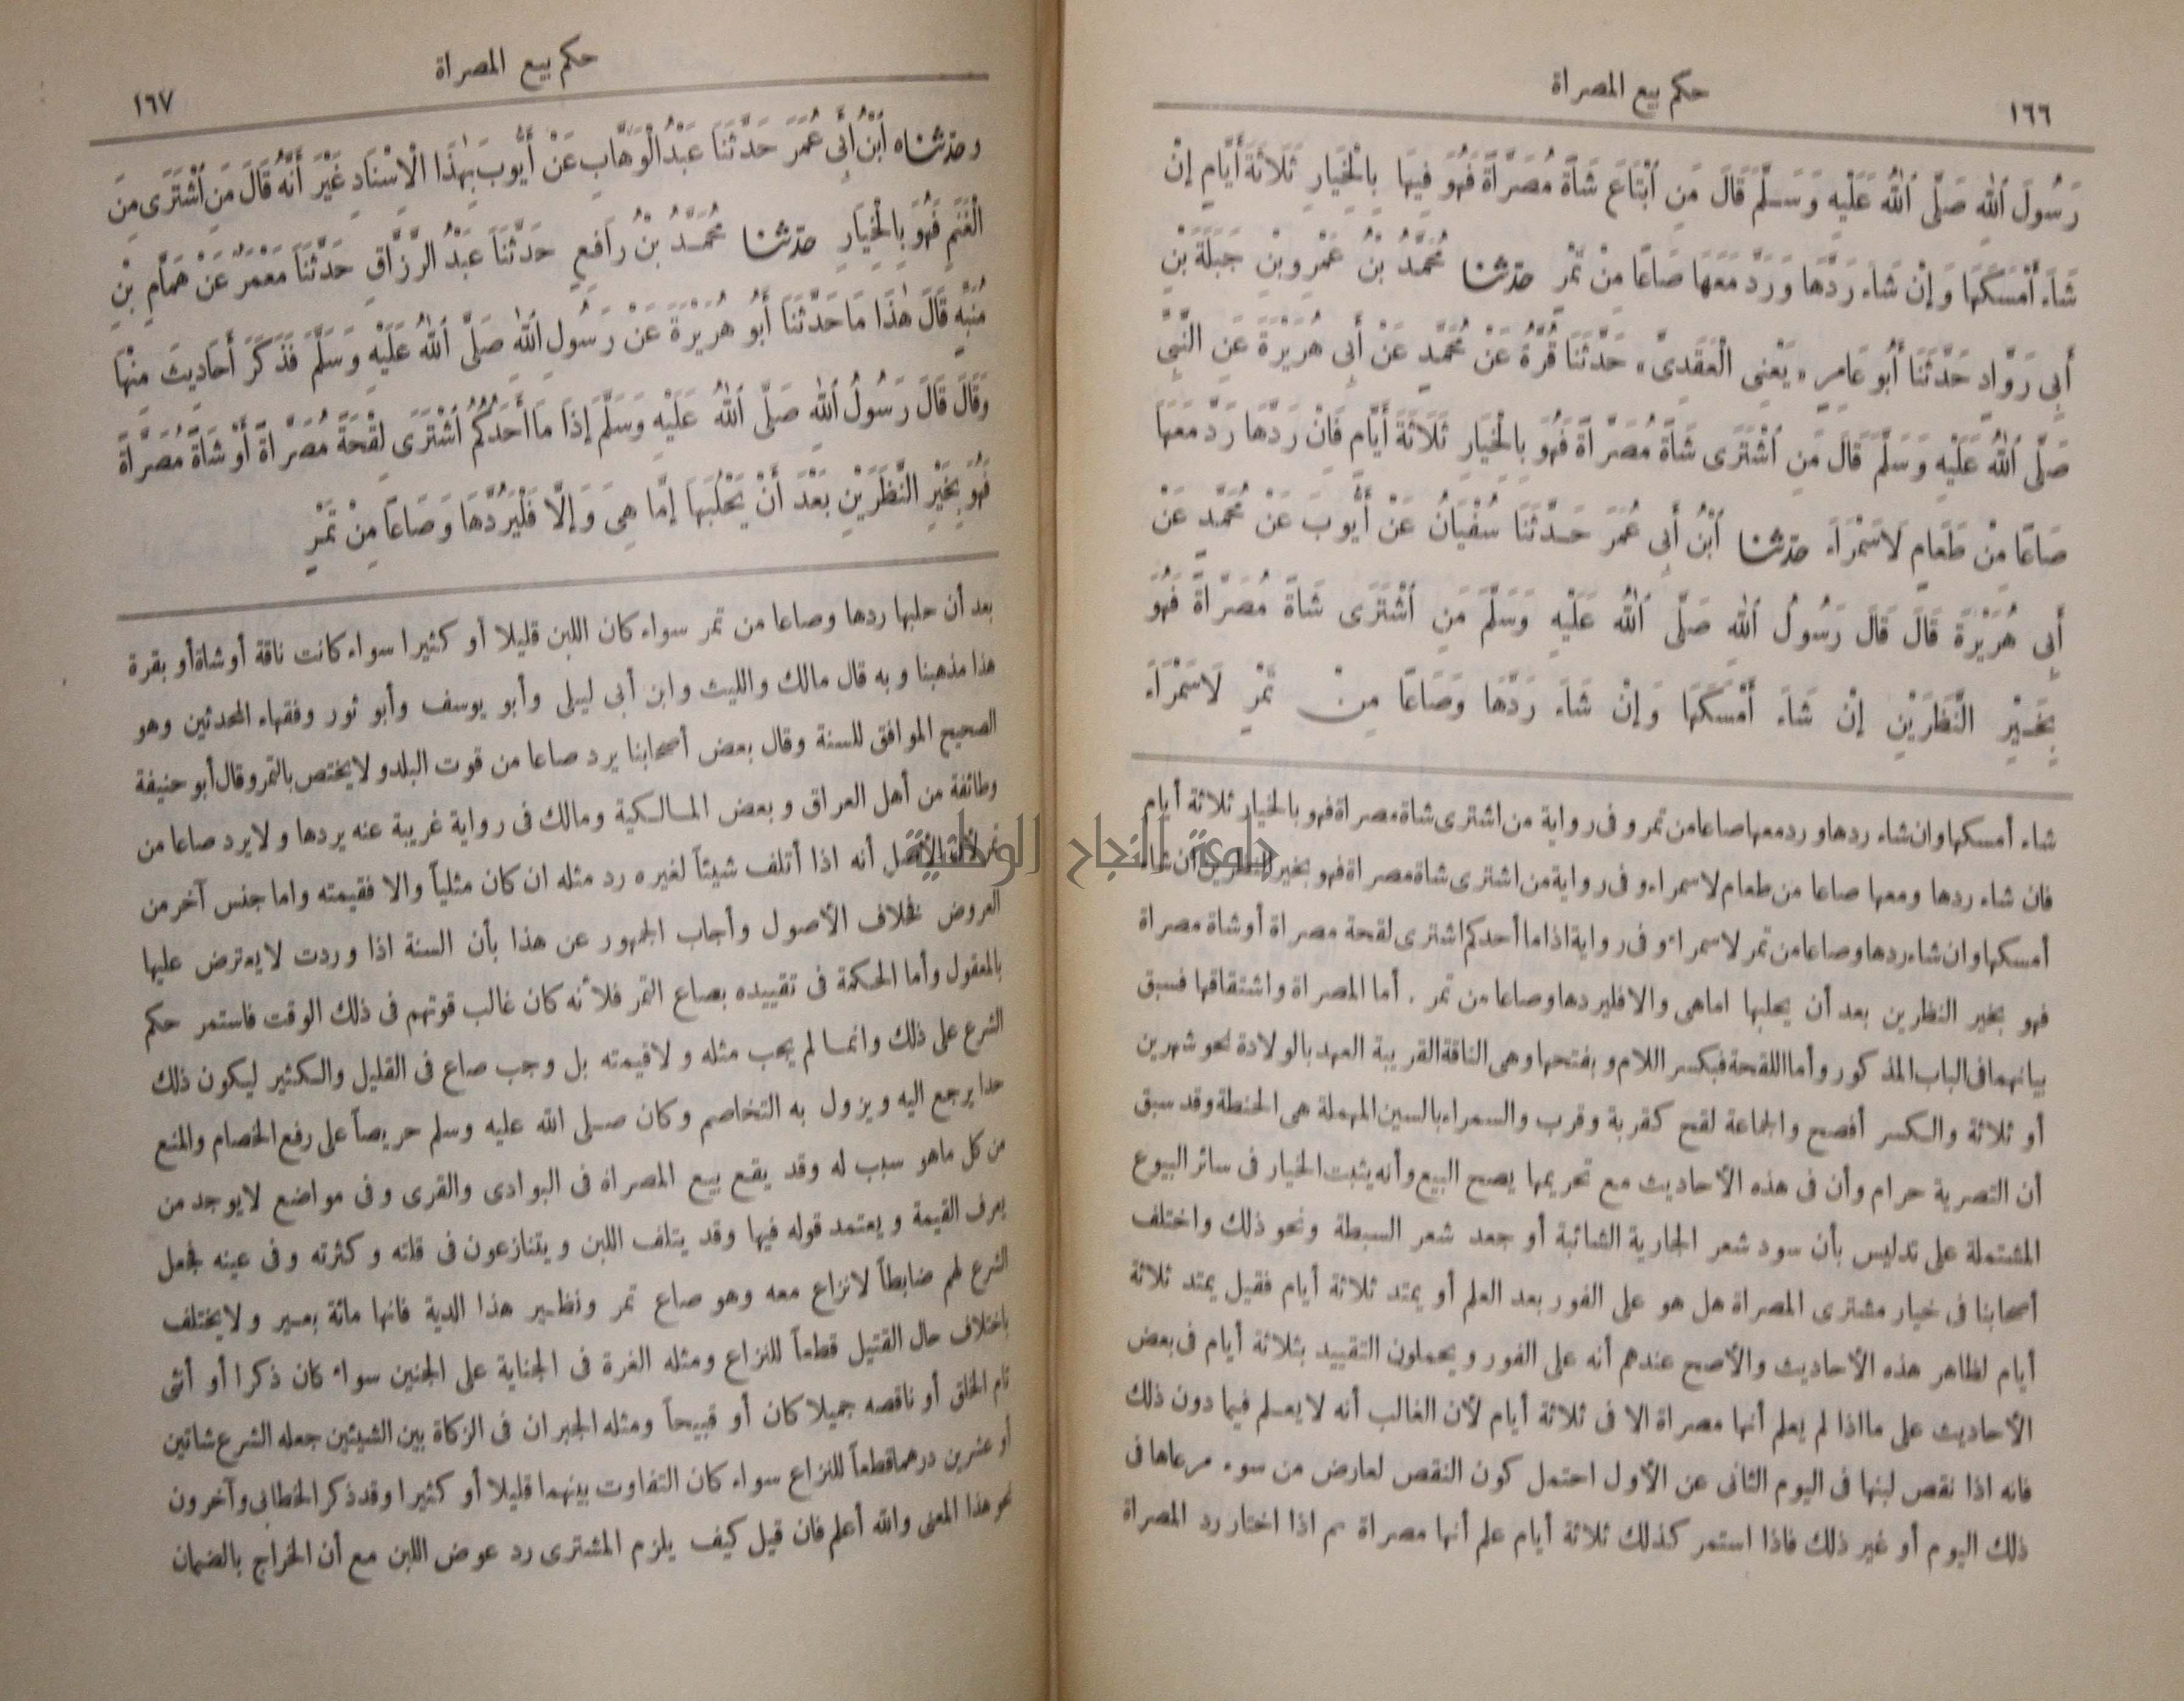 ١٦٦
حكم بيع المصراة
رَسُولَ اللهِ صَلَّى اللهُ عَلَيْهِ وَسَلَّمَ قَالَ مَنِ ابْتَاعَ شَاةً مُصَرَّاةً فَهُوَ فِيهَا بِالْخِيَارِ ثَلَاثَةَ أَيَّامٍ إِنْ
شَاءَ أَمْسَكَهَا وَإِنْ شَاءَ رَدَّهَا وَرَدَّ مَعَهَا صَاعًا مِنْ تَمْرٍ حدثنا مُحَمَّدُ بْنُ عَمْرِو بْنِ جَبَلَةَ بْنِ
أَبِي رَوَّادٍ حَدَّثَنَا أَبُو عَامِرٍ «يَعْنِي الْعَقَدِيَّ» حَدَّثَنَا قُرَّةُ عَنْ مُحَمَّدٍ عَنْ أَبِي هُرَيْرَةَ عَنِ النَّبِيِّ
صَلَّى اللهُ عَلَيْهِ وَسَلَّمَ قَالَ مَنِ اشْتَرَى شَاةً مُصَرَّاةً فَهُوَ بِالْخِيَارِ ثَلَاثَةَ أَيَّامٍ فَانْ رَدَّهَا رَدَّ مَعَهَا
صَاعًا مِنْ طَعَامٍ لَاسَمْرَاءَ حدثنا ابْنُ أَبِي عُمَرَ حَدَّثَنَا سُفْيَانُ عَنْ أَيُّوبَ عَنْ مُحَمَّدٍ عَنْ
أَبِي هُرَيْرَةَ قَالَ قَالَ رَسُولُ اللهِ صَلَّى اللهُ عَلَيْهِ وَسَلَّمَ مَنِ اشْتَرَى شَاةً مُصَرَّاةً فَهُوَ
بِخَيْرِ النَّظَرَيْنِ إِنْ شَاءَ أَمْسَكَهَا وَإِنْ شَاءَ رَدَّهَا وَصَاعًا مِنْ تَمْرٍ لَاسَمْرَاءَ
شاء أمسكها وان شاء ردها ورد معها صاعا من تمر وفى رواية من اشترى شاة مصراة فهو بالخيار ثلاثة أيام
فان شاء ردها ومعها صاعا من طعام لاسمراء وفى رواية من اشترى شاة مصراة فهو بخير النظرين ان شاء
أمسكها وان شاء ردها وصاعا من تمر لاسمراء وفى رواية اذا ما أحدكم اشترى لقحة مصراة أو شاة مصراة
فهو بخير النظرين بعد أن يحلبها اماهى والا فليردها وصاعا من تمر . أما المصراة واشتقاقها فسبق
بيانهما فى الباب المذكور وأما اللقحة فبكسر اللام وبفتحها وهى الناقة القريبة العهد بالولادة نحو شهرين
أو ثلاثة والكسر أفصح والجماعة لقح كقربة وقرب والسمراء بالسين المهملة هى الحنطة وقد سبق
أن التصرية حرام وأن فى هذه الأحاديث مع تحريمها يصح البيع وأنه يثبت الخيار فى سائر البيوع
المشتملة على تدليس بأن سود شعر الجارية الشائبة أو جعد شعر السبطة ونحو ذلك واختلف
أصحابنا فى خيار مشترى المصراة هل هو على الفور بعد العلم أو يمتد ثلاثة أيام فقيل يمتد ثلاثة
أيام لظاهر هذه الأحاديث والأصح عندهم أنه على الفور ويحملون التقييد بثلاثة أيام فى بعض
الأحاديث على ما اذا لم يعلم أنها مصراة الا فى ثلاثة أيام لأن الغالب أنه لا يعلم فيما دون ذلك
فانه اذا نقص لبنها فى اليوم الثانى عن الأول احتمل كون النقص لعارض من سوء مرعاها فى
ذلك اليوم أو غير ذلك فاذا استمر كذلك ثلاثة أيام علم أنها مصراة ثم اذا اختار رد المصراة
حكم بيع المصراة
١٦٧
وحدثناه ابْنُ أَبِي عُمَرَ حَدَّثَنَا عَبْدُ الْوَهَّابِ عَنْ أَيُّوبَ بِهٰذَا الْاِسْنَادِ غَيْرَ أَنَّهُ قَالَ مَنِ اشْتَرَى مِنَ
الْغَنَمِ فَهُوَ بِالْخِيَارِ حدثنا مُحَمَّدُ بْنُ رَافِعٍ حَدَّثَنَا عَبْدُ الرَّزَّاقِ حَدَّثَنَا مَعْمَرٌ عَنْ هَمَّامِ بْنِ
مُنَبِّهٍ قَالَ هٰذَا مَا حَدَّثَنَا أَبُو هُرَيْرَةَ عَنْ رَسُولِ اللهِ صَلَّى اللهُ عَلَيْهِ وَسَلَّمَ فَذَكَرَ أَحَادِيثَ مِنْهَا
وَقَالَ قَالَ رَسُولُ اللهِ صَلَّى اللهُ عَلَيْهِ وَسَلَّمَ إِذَا مَا أَحَدُكُمُ اشْتَرَى لِقْحَةً مُصَرَّاةً أَوْ شَاةً مُصَرَّاةً
فَهُوَ بِخَيْرِ النَّظَرَيْنِ بَعْدَ أَنْ يَحْلُبَهَا إِمَّا هِيَ وَإِلَّا فَلْيَرُدَّهَا وَصَاعًا مِنْ تَمْرٍ
بعد أن حلبها ردها وصاعا من تمر سواء كان اللبن قليلا أو كثيرا سواء كانت ناقة أو شاة أو بقرة
هذا مذهبنا وبه قال مالك والليث وابن أبى ليلى وأبو يوسف وأبو ثور وفقهاء المحدثين وهو
الصحيح الموافق للسنة وقال بعض أصحابنا يرد صاعا من قوت البلد ولا يختص بالتمر وقال أبو حنيفة
وطائفة من أهل العراق وبعض المالكية ومالك فى رواية غريبة عنه يردها ولا يرد صاعا من
تمر لأن الأصل أنه اذا أتلف شيئاً لغيره رد مثله ان كان مثلياً والا فقيمته واما جنس آخر من
العروض فخلاف الأصول وأجاب الجمهور عن هذا بأن السنة اذا وردت لا يعترض عليها
بالمعقول وأما الحكمة فى تقييده بصاع التمر فلأنه كان غالب قوتهم فى ذلك الوقت فاستمر حكم
الشرع على ذلك وانما لم يجب مثله ولا قيمته بل وجب صاع فى القليل والكثير ليكون ذلك
حدا يرجع اليه ويزول به التخاصم وكان صلى الله عليه وسلم حريصاً على رفع الخصام والمنع
من كل ماهو سبب له وقد يقع بيع المصراة فى البوادى والقرى وفى مواضع لا يوجد من
يعرف القيمة ويعتمد قوله فيها وقد يتلف اللبن ويتنازعون فى قلته وكثرته وفى عينه فجعل
الشرع لهم ضابطاً لا نزاع معه وهو صاع تمر ونظير هذا الدية فانها مائة بعير ولا يختلف
باختلاف حال القتيل قطعاً للنزاع ومثله الغرة فى الجناية على الجنين سواء كان ذكرا أو أنثى
تام الخلق أو ناقصه جميلا كان أو قبيحاً ومثله الجبران فى الزكاة بين الشيئين جعله الشرع شاتين
أو عشرين درهما قطعاً للنزاع سواء كان التفاوت بينهما قليلا أو كثيرا وقد ذكر الخطابى وآخرون
نحو هذا المعنى والله أعلم فان قيل كيف يلزم المشترى رد عوض اللبن مع أن الخراج بالضمان
جامعة النجاح الوطنية